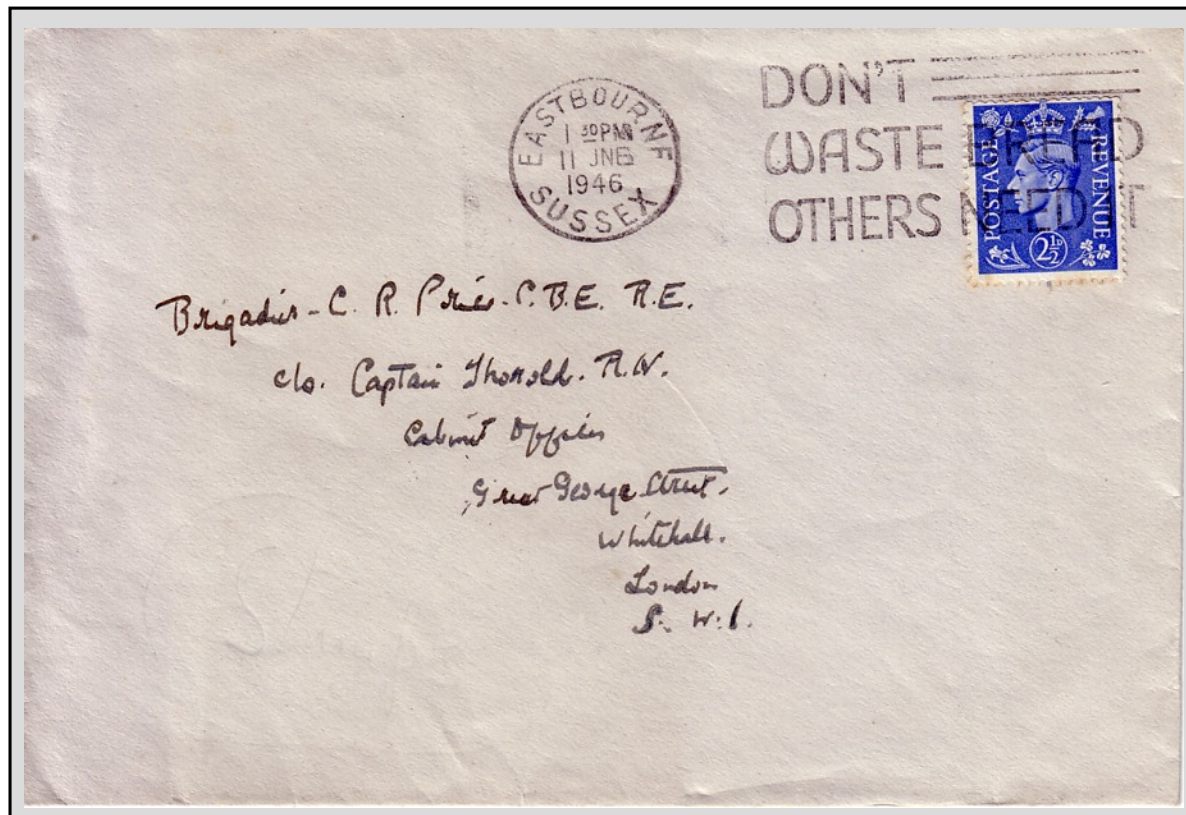 EASTBOURNE
1 30 PM
11 JNE
1946
SUSSEX
DON'T
WASTE BREAD
OTHERS NEED IT
POSTAGE
REVENUE
2½D
Brigadier - C. R. Price. C.B.E. R.E.
c/o. Captain Thorold. R.N.
Cabinet Offices
Great George Street.
Whitehall.
London
S. W. 1.